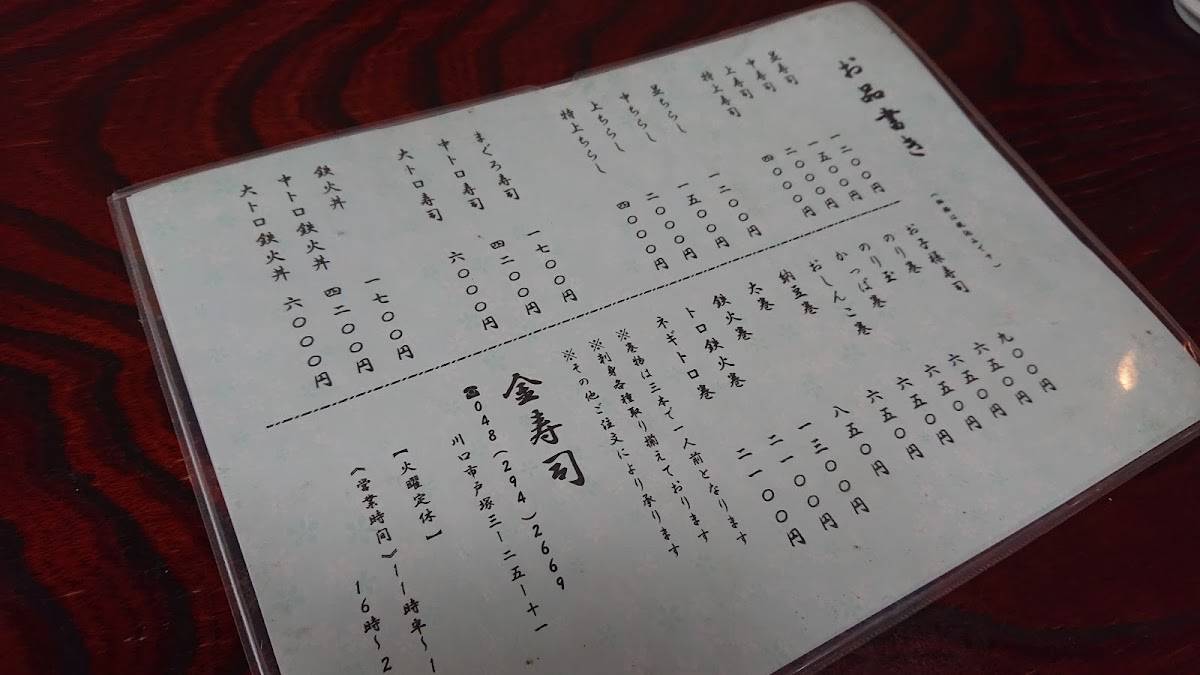 お品書き
並寿司 一二〇〇円
中寿司 一五〇〇円
上寿司 二〇〇〇円
特上寿司 四〇〇〇円
並ちらし 一二〇〇円
中ちらし 一五〇〇円
上ちらし 二〇〇〇円
特上ちらし 四〇〇〇円
まぐろ寿司 一七〇〇円
中トロ寿司 四二〇〇円
大トロ寿司 六〇〇〇円
鉄火丼 一七〇〇円
中トロ鉄火丼 四二〇〇円
大トロ鉄火丼 六〇〇〇円
お子様寿司 九〇〇円
のり巻 六五〇円
のり玉 六五〇円
かっぱ巻 六五〇円
おしんこ巻 六五〇円
納豆巻 六五〇円
太巻 八五〇円
鉄火巻 一三〇〇円
トロ鉄火巻 二一〇〇円
ネギトロ巻 二一〇〇円
※巻物は三本で一人前となります
※刺身各種取り揃えております
※その他ご注文により承ります
金寿司
☎048(294)2669
川口市戸塚三ー二五ー十一
【火曜定休】
《営業時間》11時半〜1
16時〜2